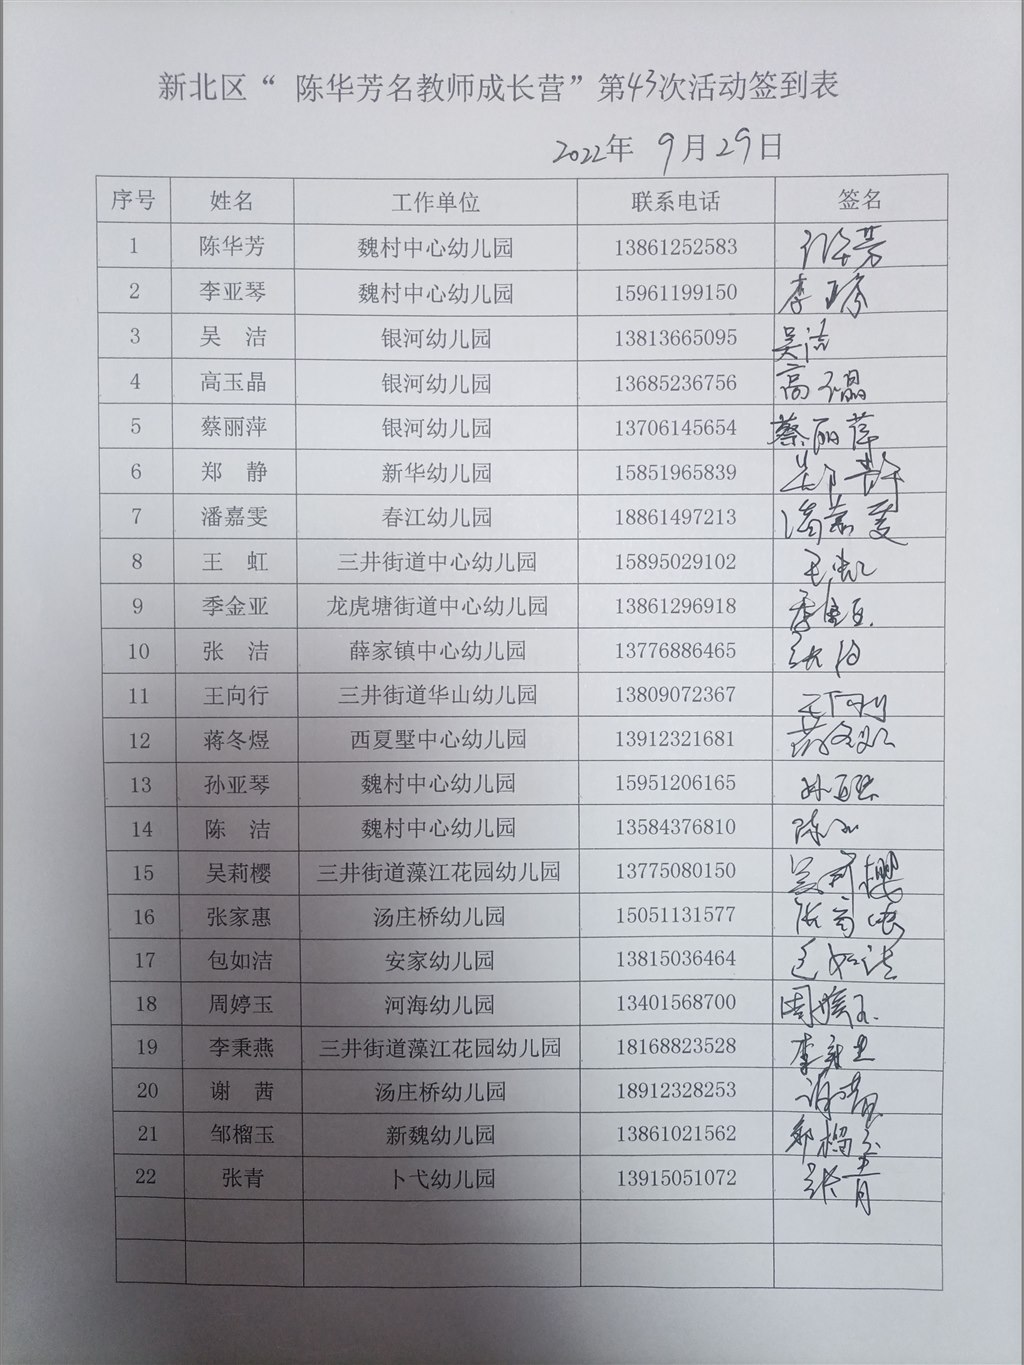 新北区“ 陈华芳名教师成长营”第43次活动签到表
2022年 9月29日
序号 姓名 工作单位 联系电话 签名
1 陈华芳 魏村中心幼儿园 13861252583 陈华芳
2 李亚琴 魏村中心幼儿园 15961199150 李亚琴
3 吴 洁 银河幼儿园 13813665095 吴洁
4 高玉晶 银河幼儿园 13685236756 高玉晶
5 蔡丽萍 银河幼儿园 13706145654 蔡丽萍
6 郑 静 新华幼儿园 15851965839 郑静
7 潘嘉雯 春江幼儿园 18861497213 潘嘉雯
8 王 虹 三井街道中心幼儿园 15895029102 王虹
9 季金亚 龙虎塘街道中心幼儿园 13861296918 季金亚
10 张 洁 薛家镇中心幼儿园 13776886465 张洁
11 王向行 三井街道华山幼儿园 13809072367 王向行
12 蒋冬煜 西夏墅中心幼儿园 13912321681 蒋冬煜
13 孙亚琴 魏村中心幼儿园 15951206165 孙亚琴
14 陈 洁 魏村中心幼儿园 13584376810 陈洁
15 吴莉樱 三井街道藻江花园幼儿园 13775080150 吴莉樱
16 张家惠 汤庄桥幼儿园 15051131577 张家惠
17 包如洁 安家幼儿园 13815036464 包如洁
18 周婷玉 河海幼儿园 13401568700 周婷玉
19 李秉燕 三井街道藻江花园幼儿园 18168823528 李秉燕
20 谢 茜 汤庄桥幼儿园 18912328253 谢茜
21 邹榴玉 新魏幼儿园 13861021562 邹榴玉
22 张青 卜弋幼儿园 13915051072 张青